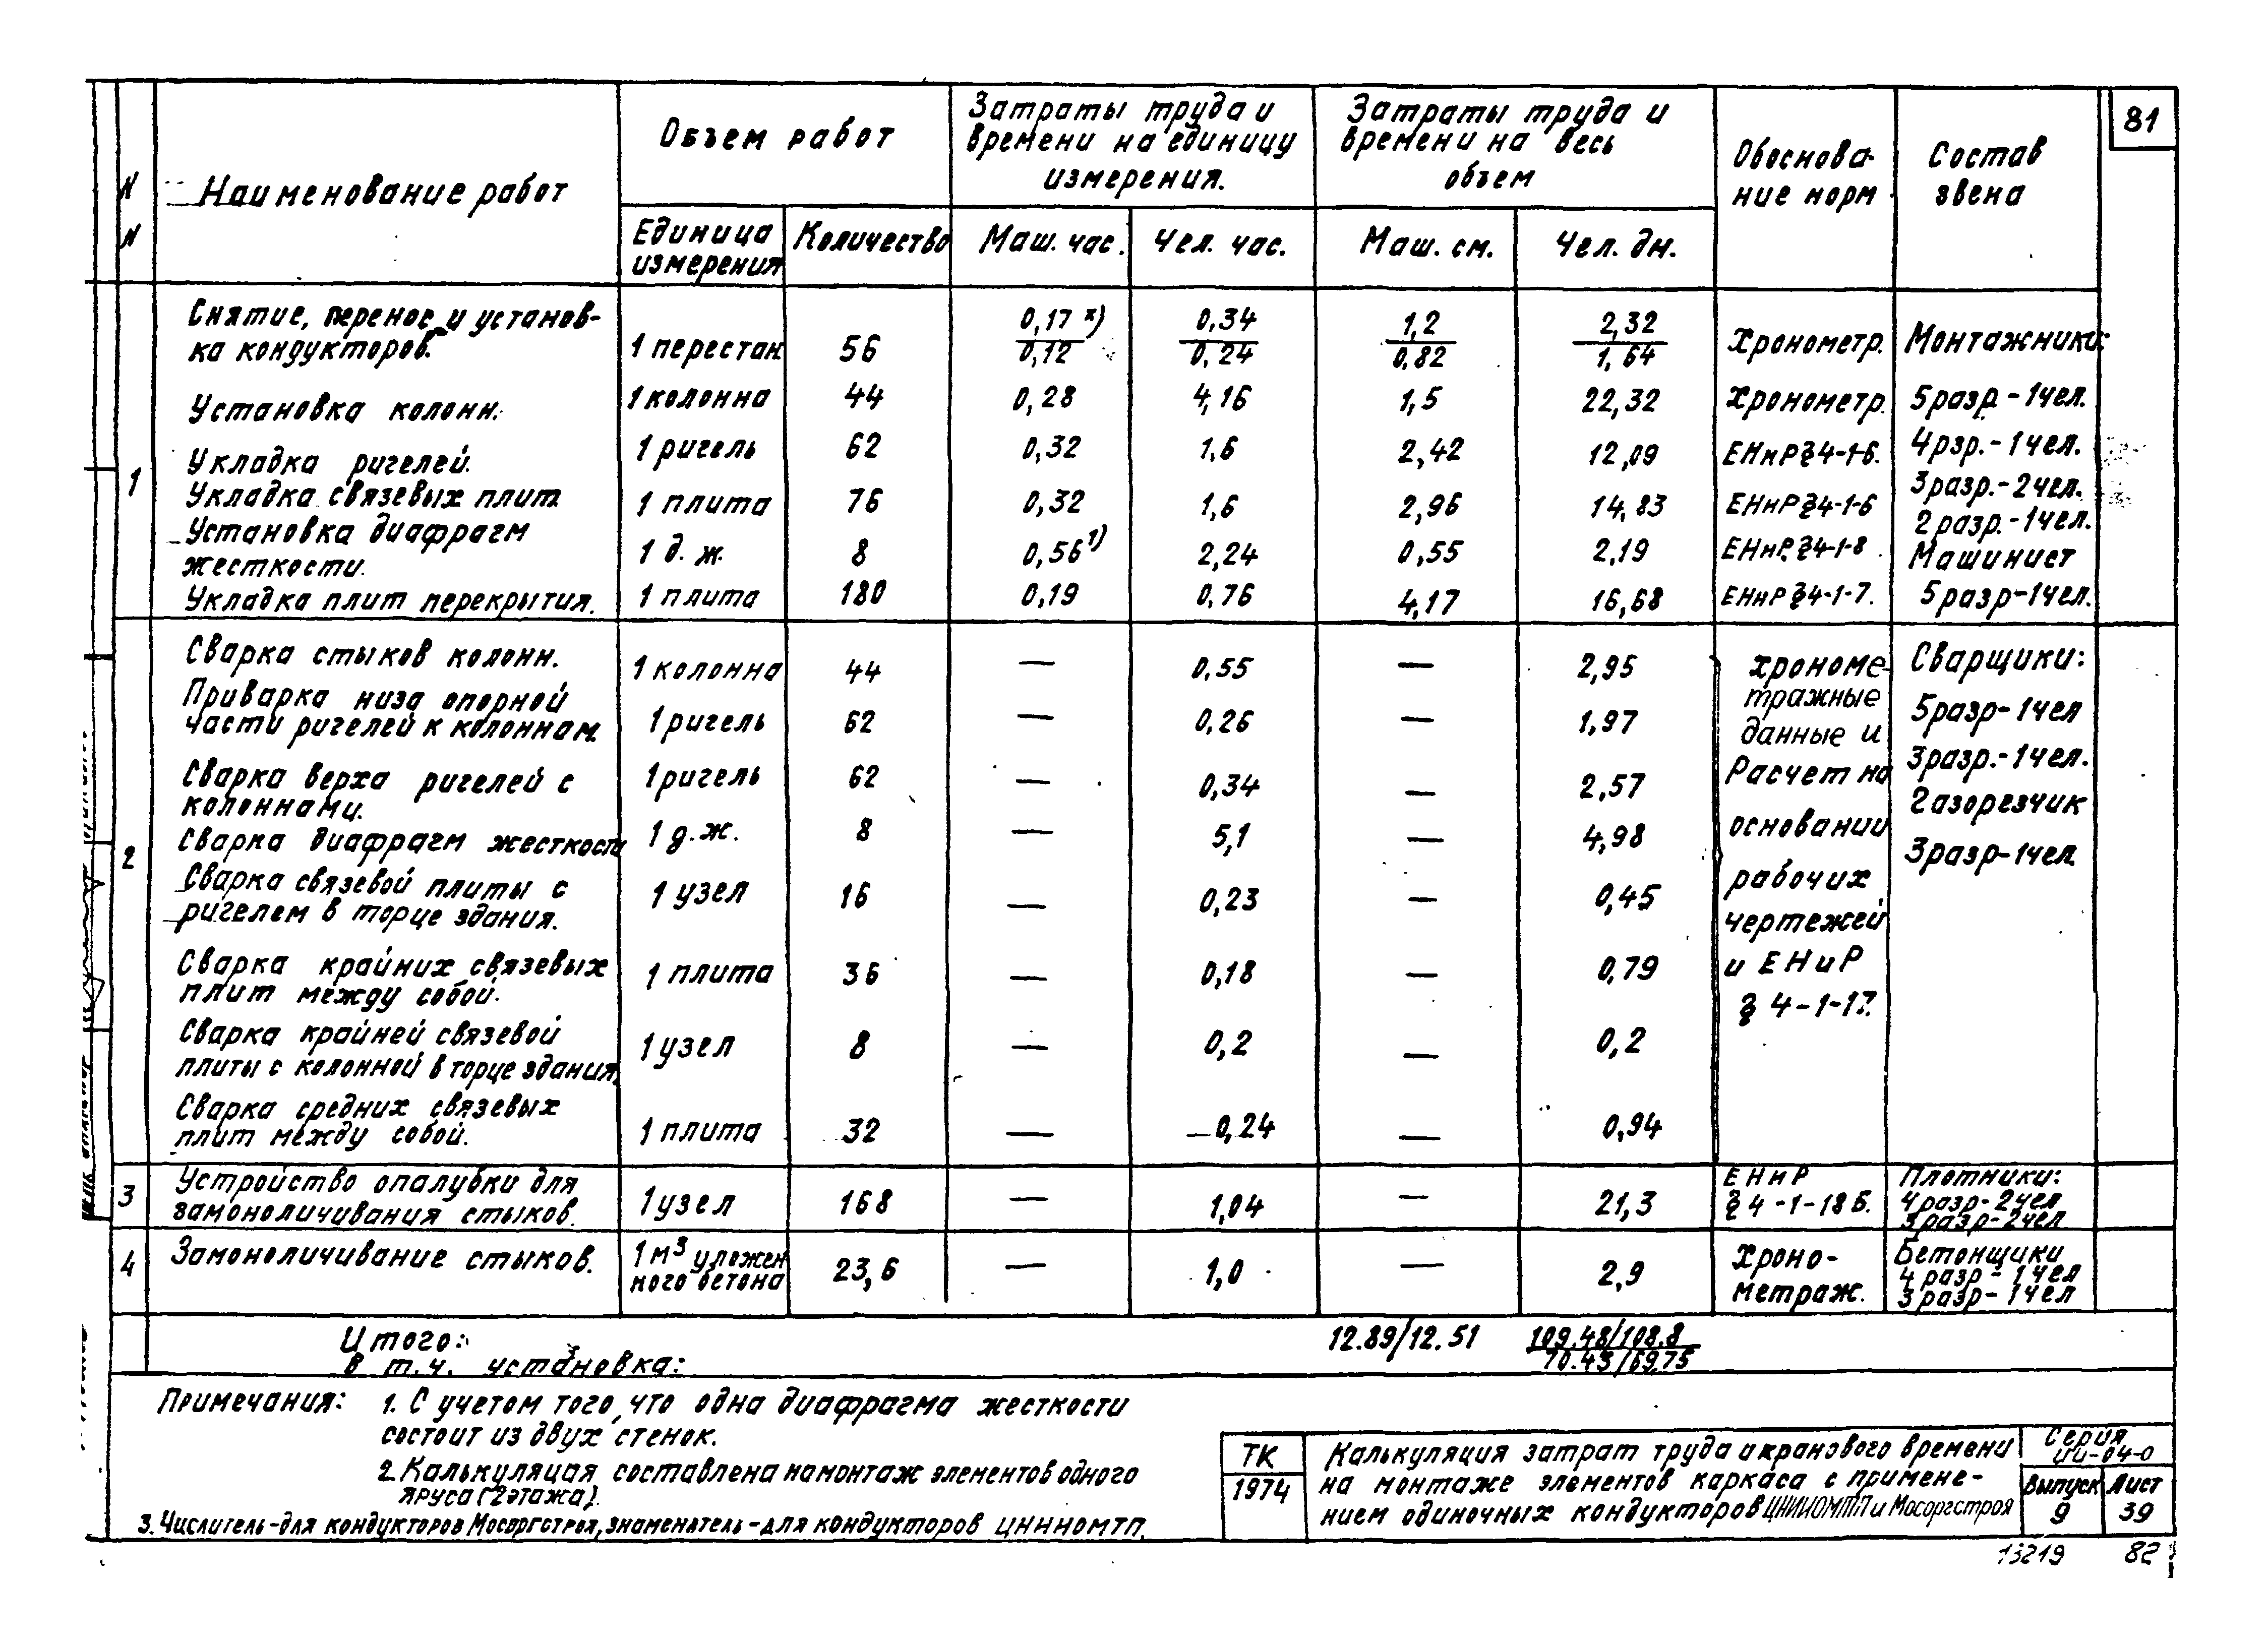 81
N
N
Наименование работ
Объем работ
Затраты труда и
времени на единицу
измерения.
Затраты труда и
времени на весь
объем
Обоснова-
ние норм
Состав
звена
Единица
измерения
Количество
Маш. час.
Чел. час.
Маш. см.
Чел. дн.
1
Снятие, перенос и установ-
ка кондукторов.
1 перестан.
56
0,17 х)
0,12
0,34
0,24
1,2
0,82
2,32
1,64
Хронометр.
Монтажники:
Установка колонн.
1 колонна
44
0,28
4,16
1,5
22,32
Хронометр.
5 разр. - 1 чел.
Укладка ригелей.
1 ригель
62
0,32
1,6
2,42
12,09
ЕНиР § 4-1-6.
4 рзр. - 1 чел.
Укладка связевых плит
1 плита
76
0,32
1,6
2,96
14,83
ЕНиР § 4-1-6
3 разр. - 2 чел.
2 разр. - 1 чел.
Установка диафрагм
жесткости.
1 д. ж.
8
0,56 1)
2,24
0,55
2,19
ЕНиР. § 4-1-8.
Машинист
Укладка плит перекрытия.
1 плита
180
0,19
0,76
4,17
16,68
ЕНиР § 4-1-7.
5 разр - 1 чел.
2
Сварка стыков колонн.
1 колонна
44
—
0,55
—
2,95
Приварка низа опорной
части ригелей к колоннам.
1 ригель
62
—
0,26
—
1,97
Сварка верха ригелей с
колоннами.
1 ригель
62
—
0,34
—
2,57
Сварка диафрагм жесткости
1 д. ж.
8
—
5,1
—
4,98
Сварка связевой плиты с
ригелем в торце здания.
1 узел
16
—
0,23
—
0,45
Сварка крайних связевых
плит между собой.
1 плита
36
—
0,18
—
0,79
Сварка крайней связевой
плиты с колонной в торце здания.
1 узел
8
—
0,2
—
0,2
Сварка средних связевых
плит между собой.
1 плита
32
—
0,24
—
0,94
хрономе-
тражные
данные и
Расчет на
основании
рабочих
чертежей
и ЕНиР
§ 4-1-17.
Сварщики:
5 разр - 1 чел
3 разр. - 1 чел.
Газорезчик
3 разр - 1 чел.
3
Устройство опалубки для
замоноличивания стыков.
1 узел
168
—
1,04
—
21,3
ЕНиР
§ 4-1-18 Б.
Плотники:
4 разр - 2 чел
3 разр - 2 чел
4
Замоноличивание стыков.
1 м3 уложен
ного бетона
23,6
—
1,0
—
2,9
Хроно-
метраж.
Бетонщики
4 разр - 1 чел
3 разр - 1 чел
Итого:
12.89/12.51
109.48/108.8
в т.ч. установка:
70.43/69,75
Примечания: 1. С учетом того, что одна диафрагма жесткости
состоит из двух стенок.
2. Калькуляция составлена на монтаж элементов одного
яруса (2 этажа).
3. Числитель - для кондукторов Мосоргстроя, знаменатель - для кондукторов ЦНИИОМТП.
ТК
1974
Калькуляция затрат труда и кранового времени
на монтаже элементов каркаса с примене-
нием одиночных кондукторов ЦНИИОМТП и Мосоргстроя
Серия
ИИ-04-0
Выпуск
9
Лист
39
13219
82